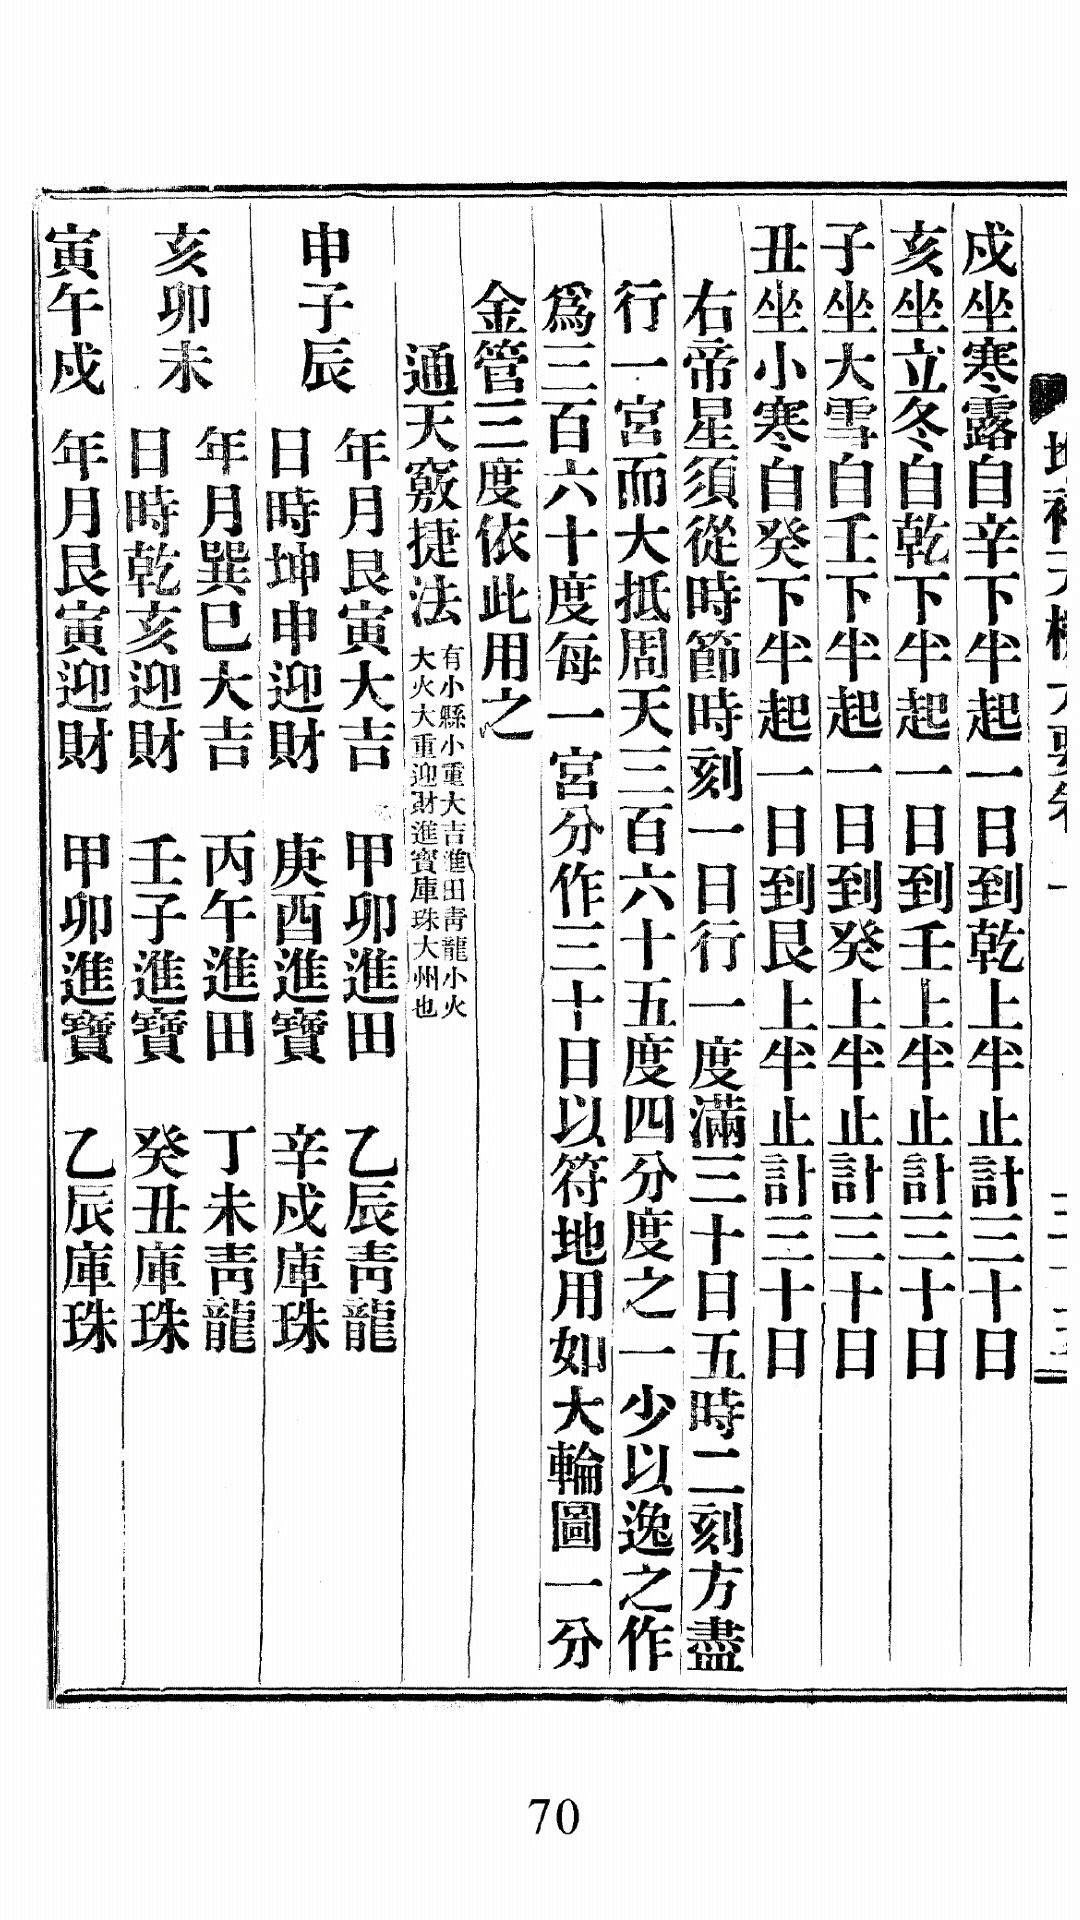 戌坐寒露自辛下半起一日到乾上半止計三十日
亥坐立冬自乾下半起一日到壬上半止計三十日
子坐大雪自壬下半起一日到癸上半止計三十日
丑坐小寒自癸下半起一日到艮上半止計三十日
右帝星須從時節時刻一日行一度滿三十日五時二刻方盡
行一宮而大抵周天三百六十五度四分度之一少以逸之作
爲三百六十度每一宮分作三十日以符地用如大輪圖一分
金管三度依此用之
通天竅捷法
有小縣小重大吉進田靑龍小火
大火大重迎財進寳庫珠大州也
申子辰
年月艮寅大吉 甲卯進田 乙辰靑龍
日時坤申迎財 庚酉進寳 辛戌庫珠
亥卯未
年月巽巳大吉 丙午進田 丁未靑龍
日時乾亥迎財 壬子進寳 癸丑庫珠
寅午戌
年月艮寅迎財 甲卯進寳 乙辰庫珠
70